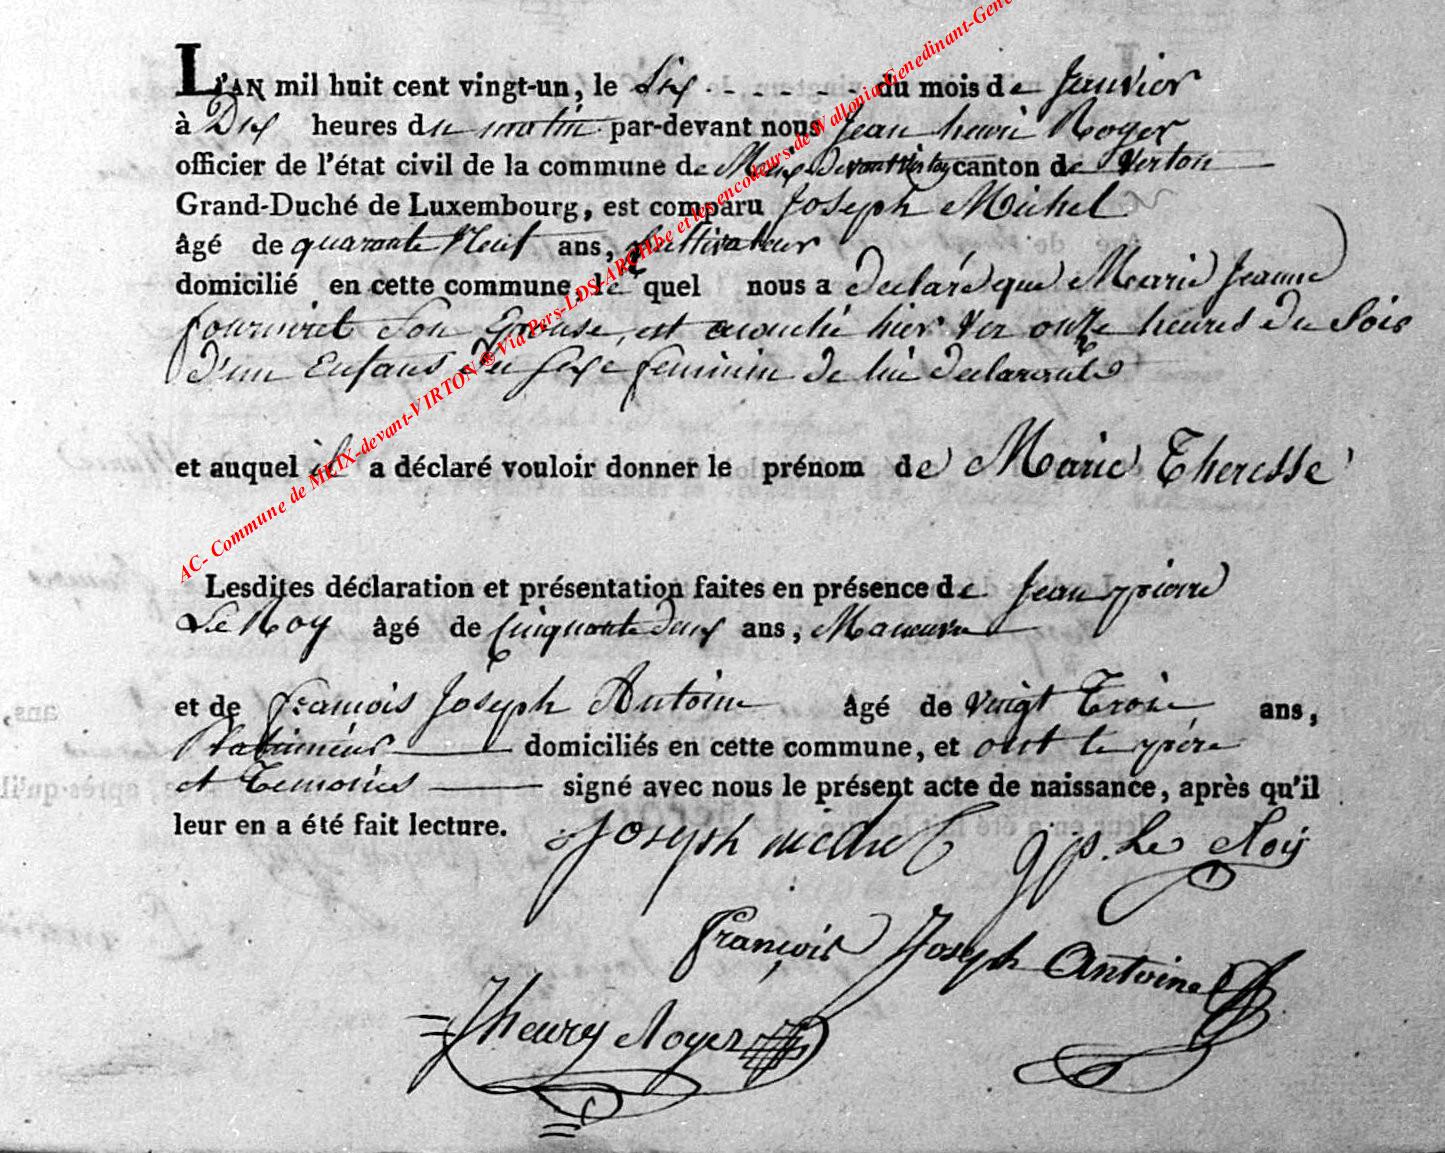 L'AN mil huit cent vingt-un, le Six - - - - - - du mois de Janvier
à Dix heures du matin par-devant nous Jean henri Roger
officier de l'état civil de la commune de Meix Devant Virton canton de Virton
Grand-Duché de Luxembourg, est comparu Joseph Michel
âgé de quarante Neuf ans, Cultivateur
domicilié en cette commune, le quel nous a declaré que Marie Jeanne
fourniret Son Epouse, est acouché hier Ver onze heures du Soir
D'un Enfans du Sexe feminin de lui declarant
et auquel il a déclaré vouloir donner le prénom de Marie Theresse
Lesdites déclaration et présentation faites en présence de Jean pierre
Le Roy âgé de Cinquante deux ans, Maneuvre
et de francois Joseph Antoine âgé de Vingt Trois ans,
domiciliés en cette commune, et ont le pere
et Temoins signé avec nous le présent acte de naissance, après qu'il
leur en a été fait lecture. Joseph michel J p. Le Roy
françois Joseph Antoine
J henry Roger
AC- Commune de MEIX-devant-VIRTON ® Via Pers-LDS-ARCH.be et les encodeurs de Wallonia Genedinant-Gene